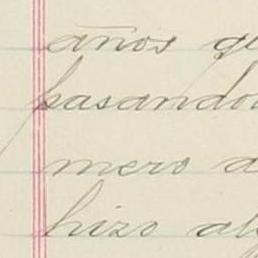 años
pasando
mero
hizo